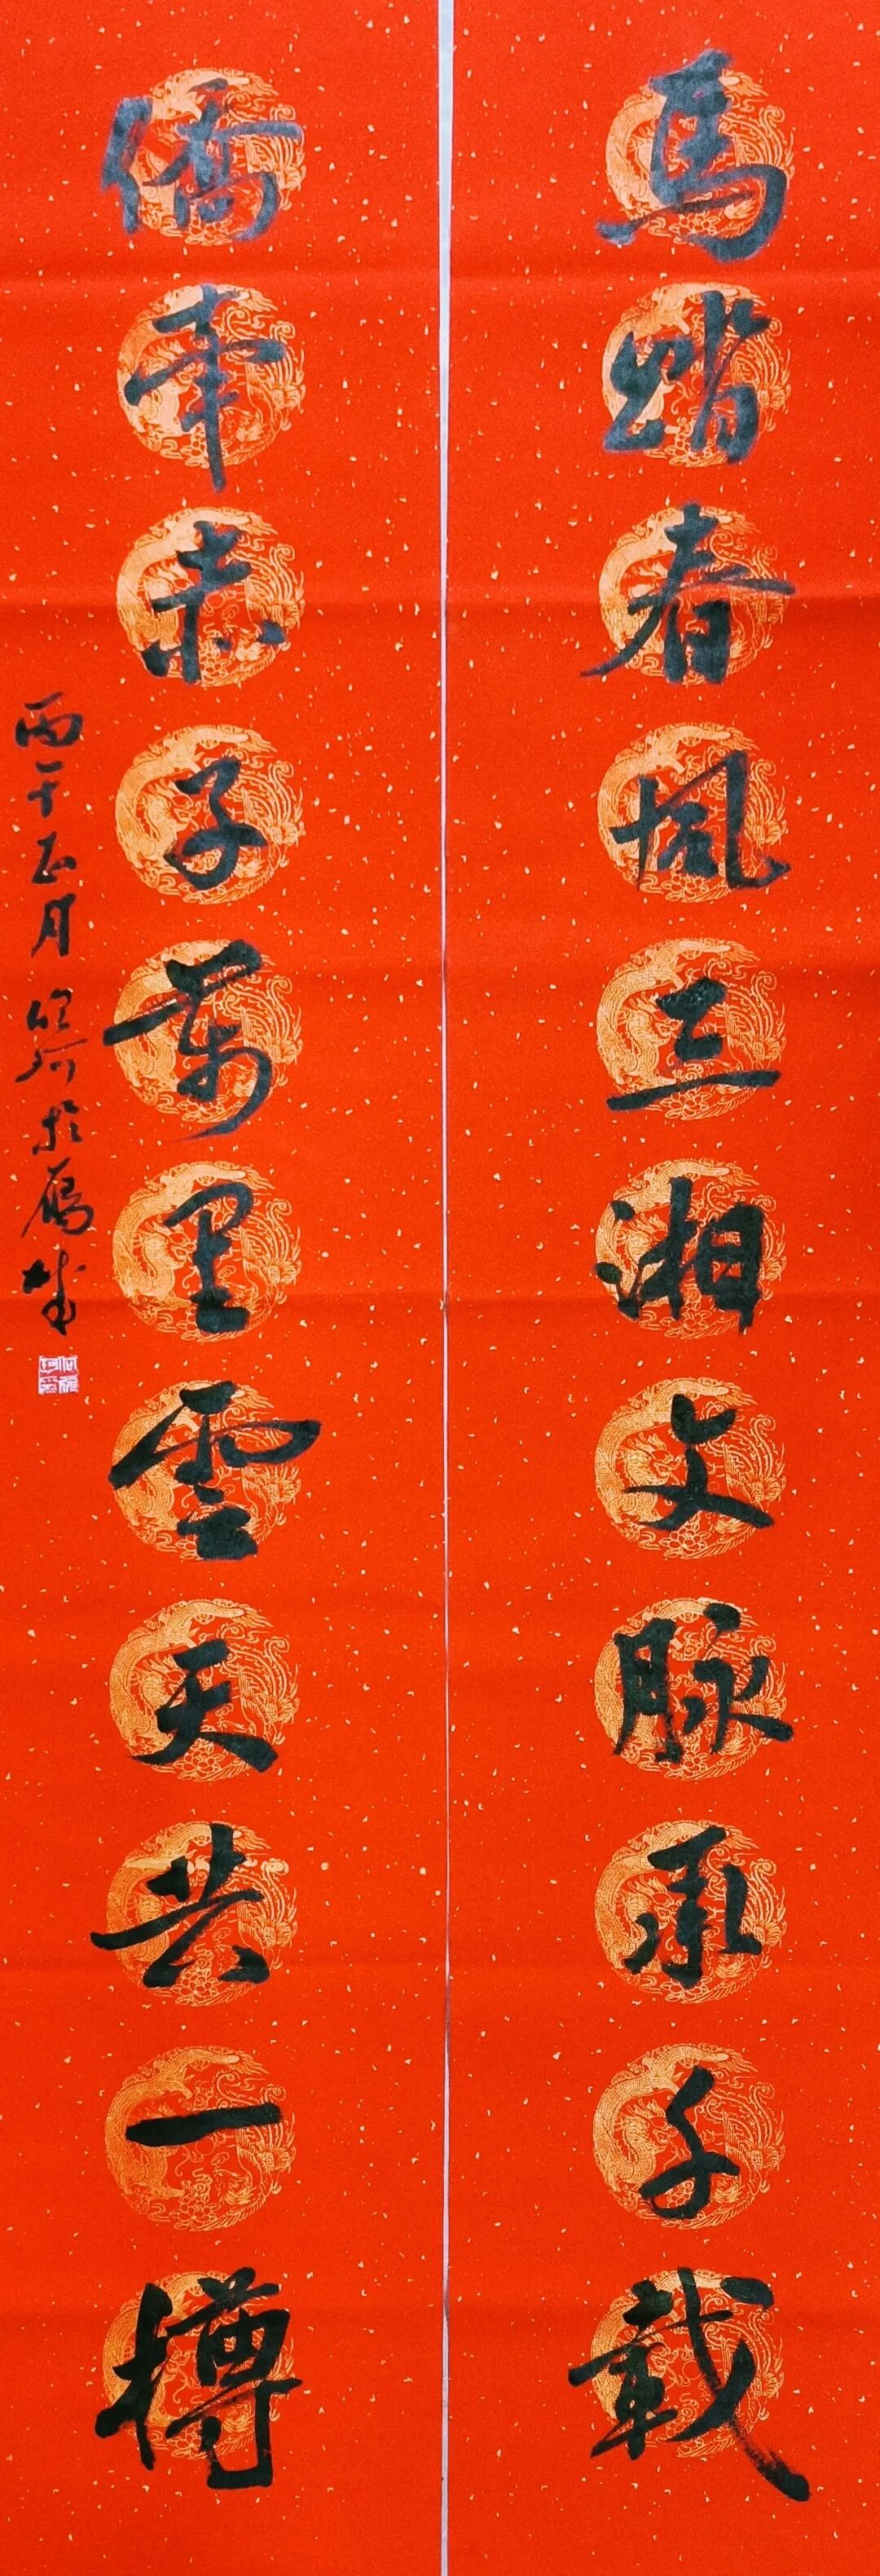 馬踏春風三湘文脈承千載
僑牽赤子萬里雲天共一樽
丙午正月 於雁城